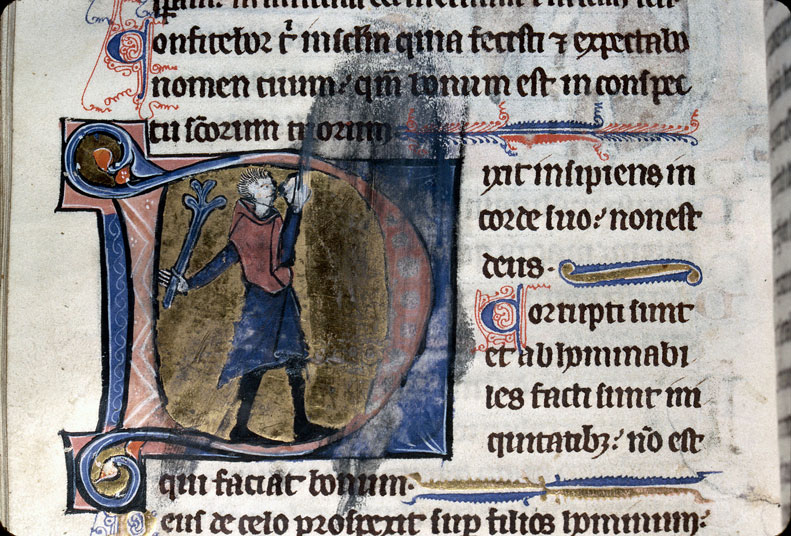 onfitebor t̄ in sclm̄ quia fecisti ⁊ expectabo
nomen tuum: qm̄ bonum est in conspec
tu sc̄orum tuorum
D ixit insipiens in
corde suo: non est
deus.
Corrupti sunt
et abhominabi
les facti sunt in
iniquitatibꝫ: nō est
qui faciat bonum.
eus de celo prospexit sup filios hominum: